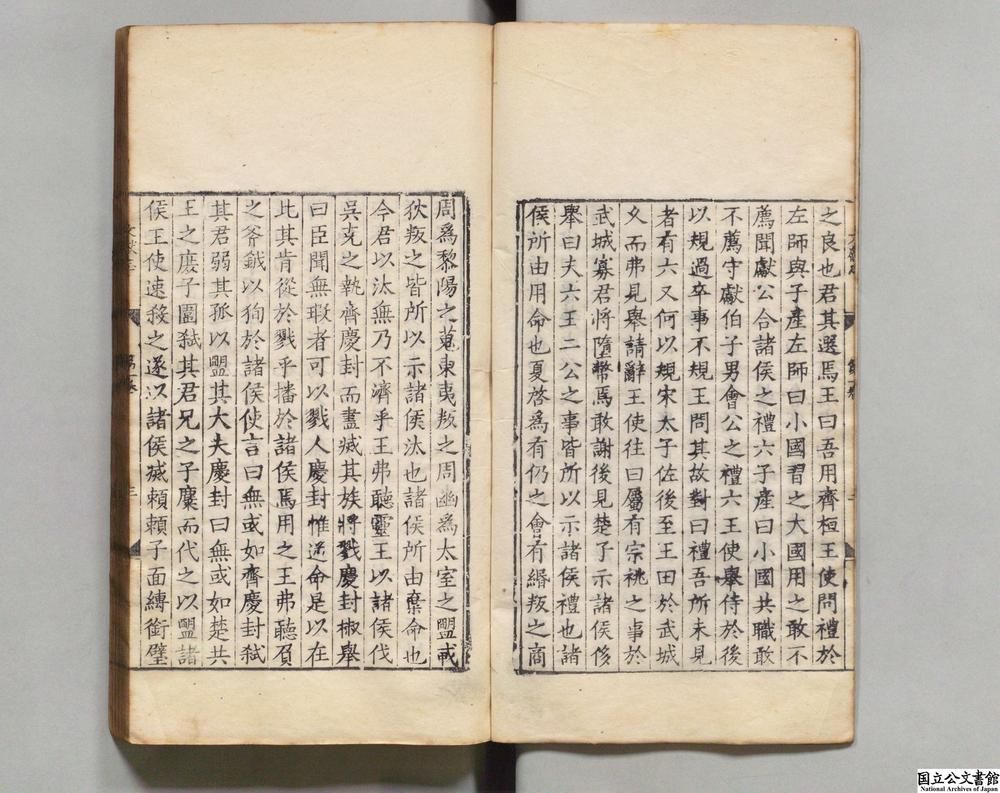 之良也君其選焉王曰吾用齊桓王使問禮於
左師與子產左師曰小國習之大國用之敢不
薦聞獻公合諸侯之禮六子產曰小國共職敢
不薦守獻伯子男會公之禮六王使舉侍於後
以規過卒事不規王問其故對曰禮吾所未見
者有六又何以規宋太子佐後至王田於武城
久而弗見舉請辭王使往曰屬有宗祧之事於
武城寡君將墮幣焉敢謝後見楚子示諸侯侈
舉曰夫六王二公之事皆所以示諸侯禮也諸
侯所由用命也夏啓爲有仍之會有緡叛之商
周爲黎陽之蒐東夷叛之周幽爲太室之盟戎
狄叛之皆所以示諸侯汰也諸侯所由棄命也
今君以汰無乃不濟乎王弗聽靈王以諸侯伐
吳克之執齊慶封而盡滅其族將戮慶封椒舉
曰臣聞無瑕者可以戮人慶封惟逆命是以在
此其肯從於戮乎播於諸侯焉用之王弗聽負
之斧鉞以狥於諸侯使言曰無或如齊慶封弑
其君弱其孤以盟其大夫慶封曰無或如楚共
王之庶子圍弑其君兄之子麇而代之以盟諸
侯王使速殺之遂以諸侯滅賴賴子面縛銜璧
國立公文書館
National Archives of Japan